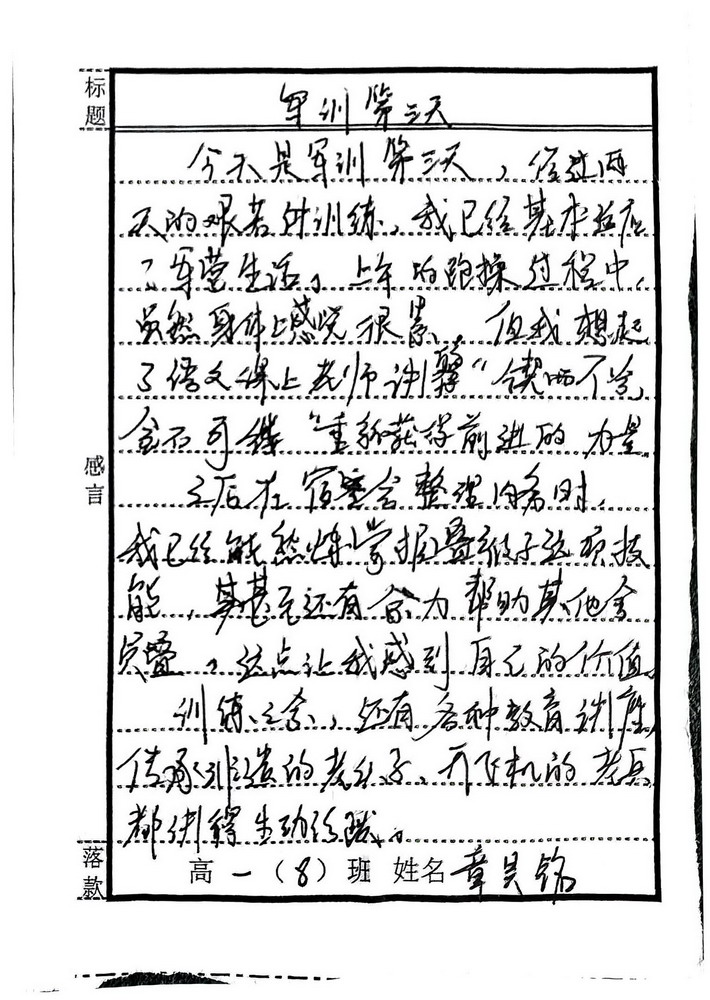 标题
军训第三天
今天是军训第三天，经过两
天的艰苦的训练，我已经基本适应
了军营生活。上午的跑操过程中，
虽然身体上感觉很累，但我想起
了语文课上老师讲的“锲而不舍，
金石可镂”重新获得前进的力量
之后在宿舍整理内务时，
我已经能熟练掌握叠被子这项技
能，甚至还有余力帮助其他舍
员叠。这点让我感到自己的价值。
训练之余，还有各种教育讲座，
传承非遗的老分子、开飞机的老兵
都讲得生动
感言
落款
高一（8）班 姓名 章昊铭